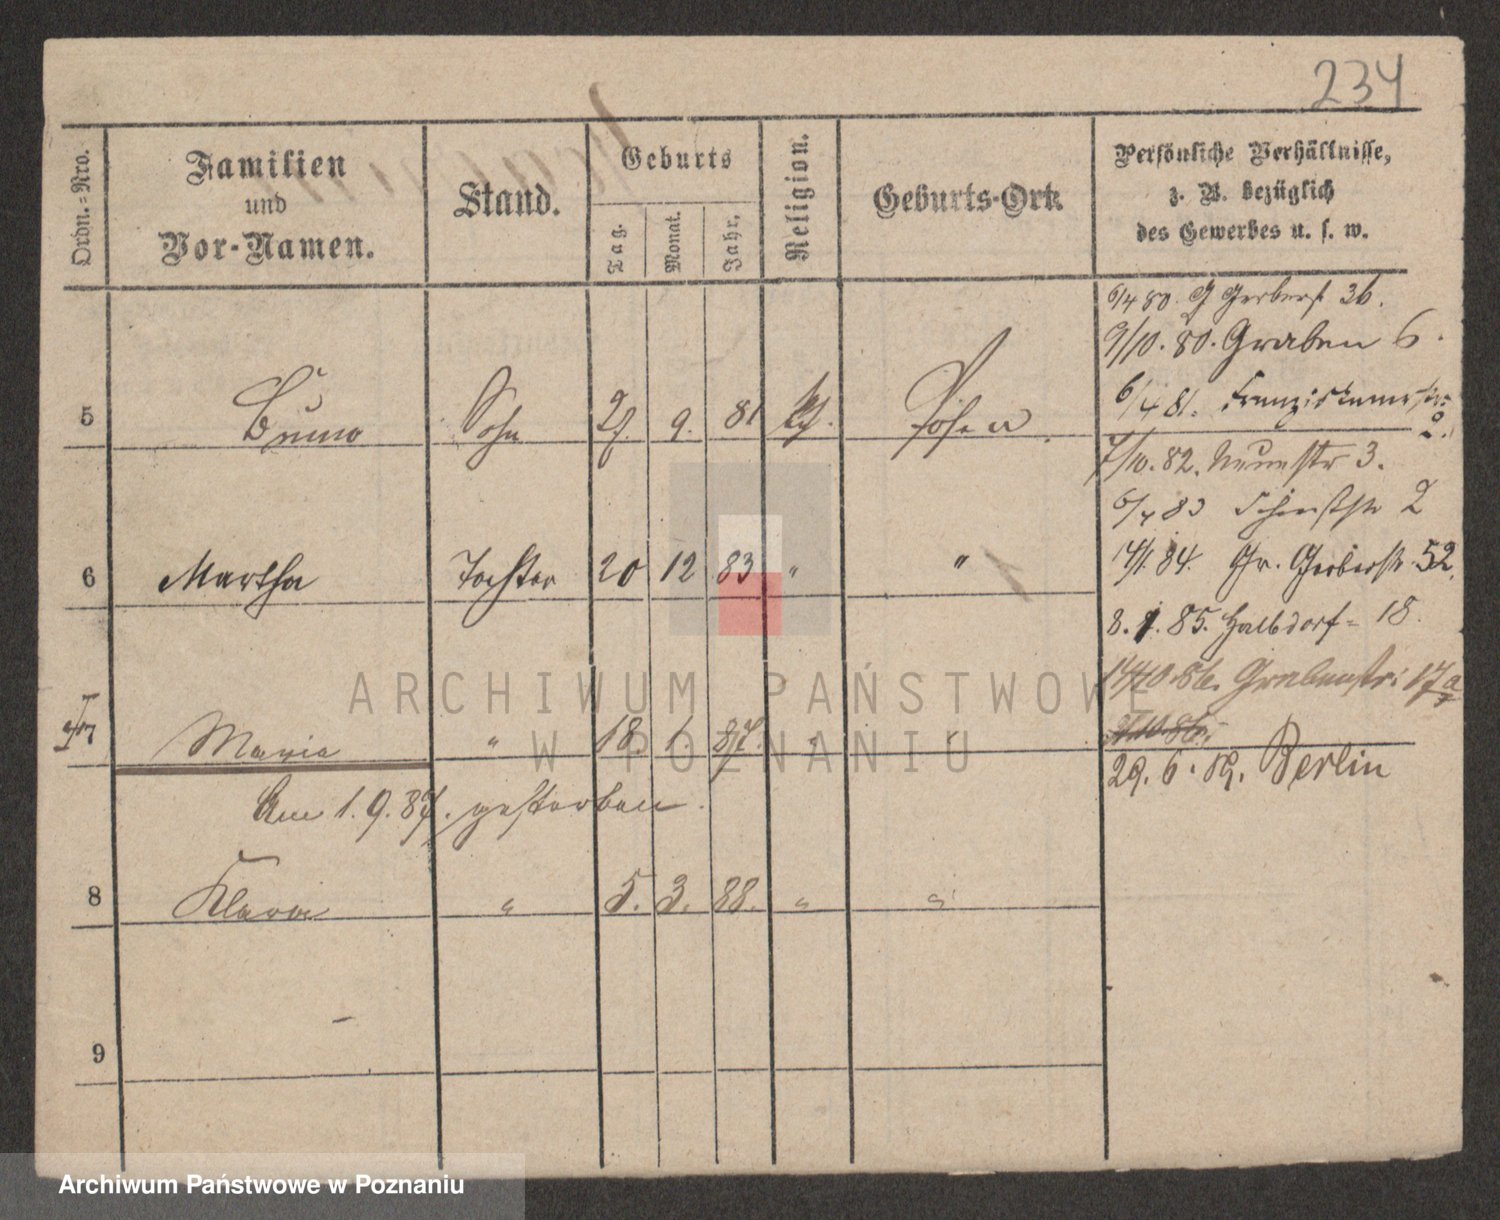 234
Ordn.-Nro.
Familien
und
Vor-Namen.
Stand.
Geburts
Tag.
Monat.
Jahr.
Religion.
Geburts-Ort.
Persönliche Verhältnisse,
z. B. bezüglich
des Gewerbes u. s. w.
6/4 80. G Gerberst 36.
9/10. 80. Graben 6.
6/4 81. Franziskanerstr.
2.
5 Bruno Sohn 9. 81 Posen
7/10. 82. Neuestr 3.
6/4 83 2
6 Martha Tochter 20 12 83 " "
14/1. 84. Gr. Gerberstr. 52.
8. 1. 85. Halbdorf- 18.
14/10. 86. Grabenstr: 17a
7 Maria " 18. 1. 87. " "
29. 6. 89. Berlin
Am 1. 9. 87. gestorben.
8 Klara " 5. 3. 88. " "
9
ARCHIWUM PAŃSTWOWE
W POZNANIU
Archiwum Państwowe w Poznaniu